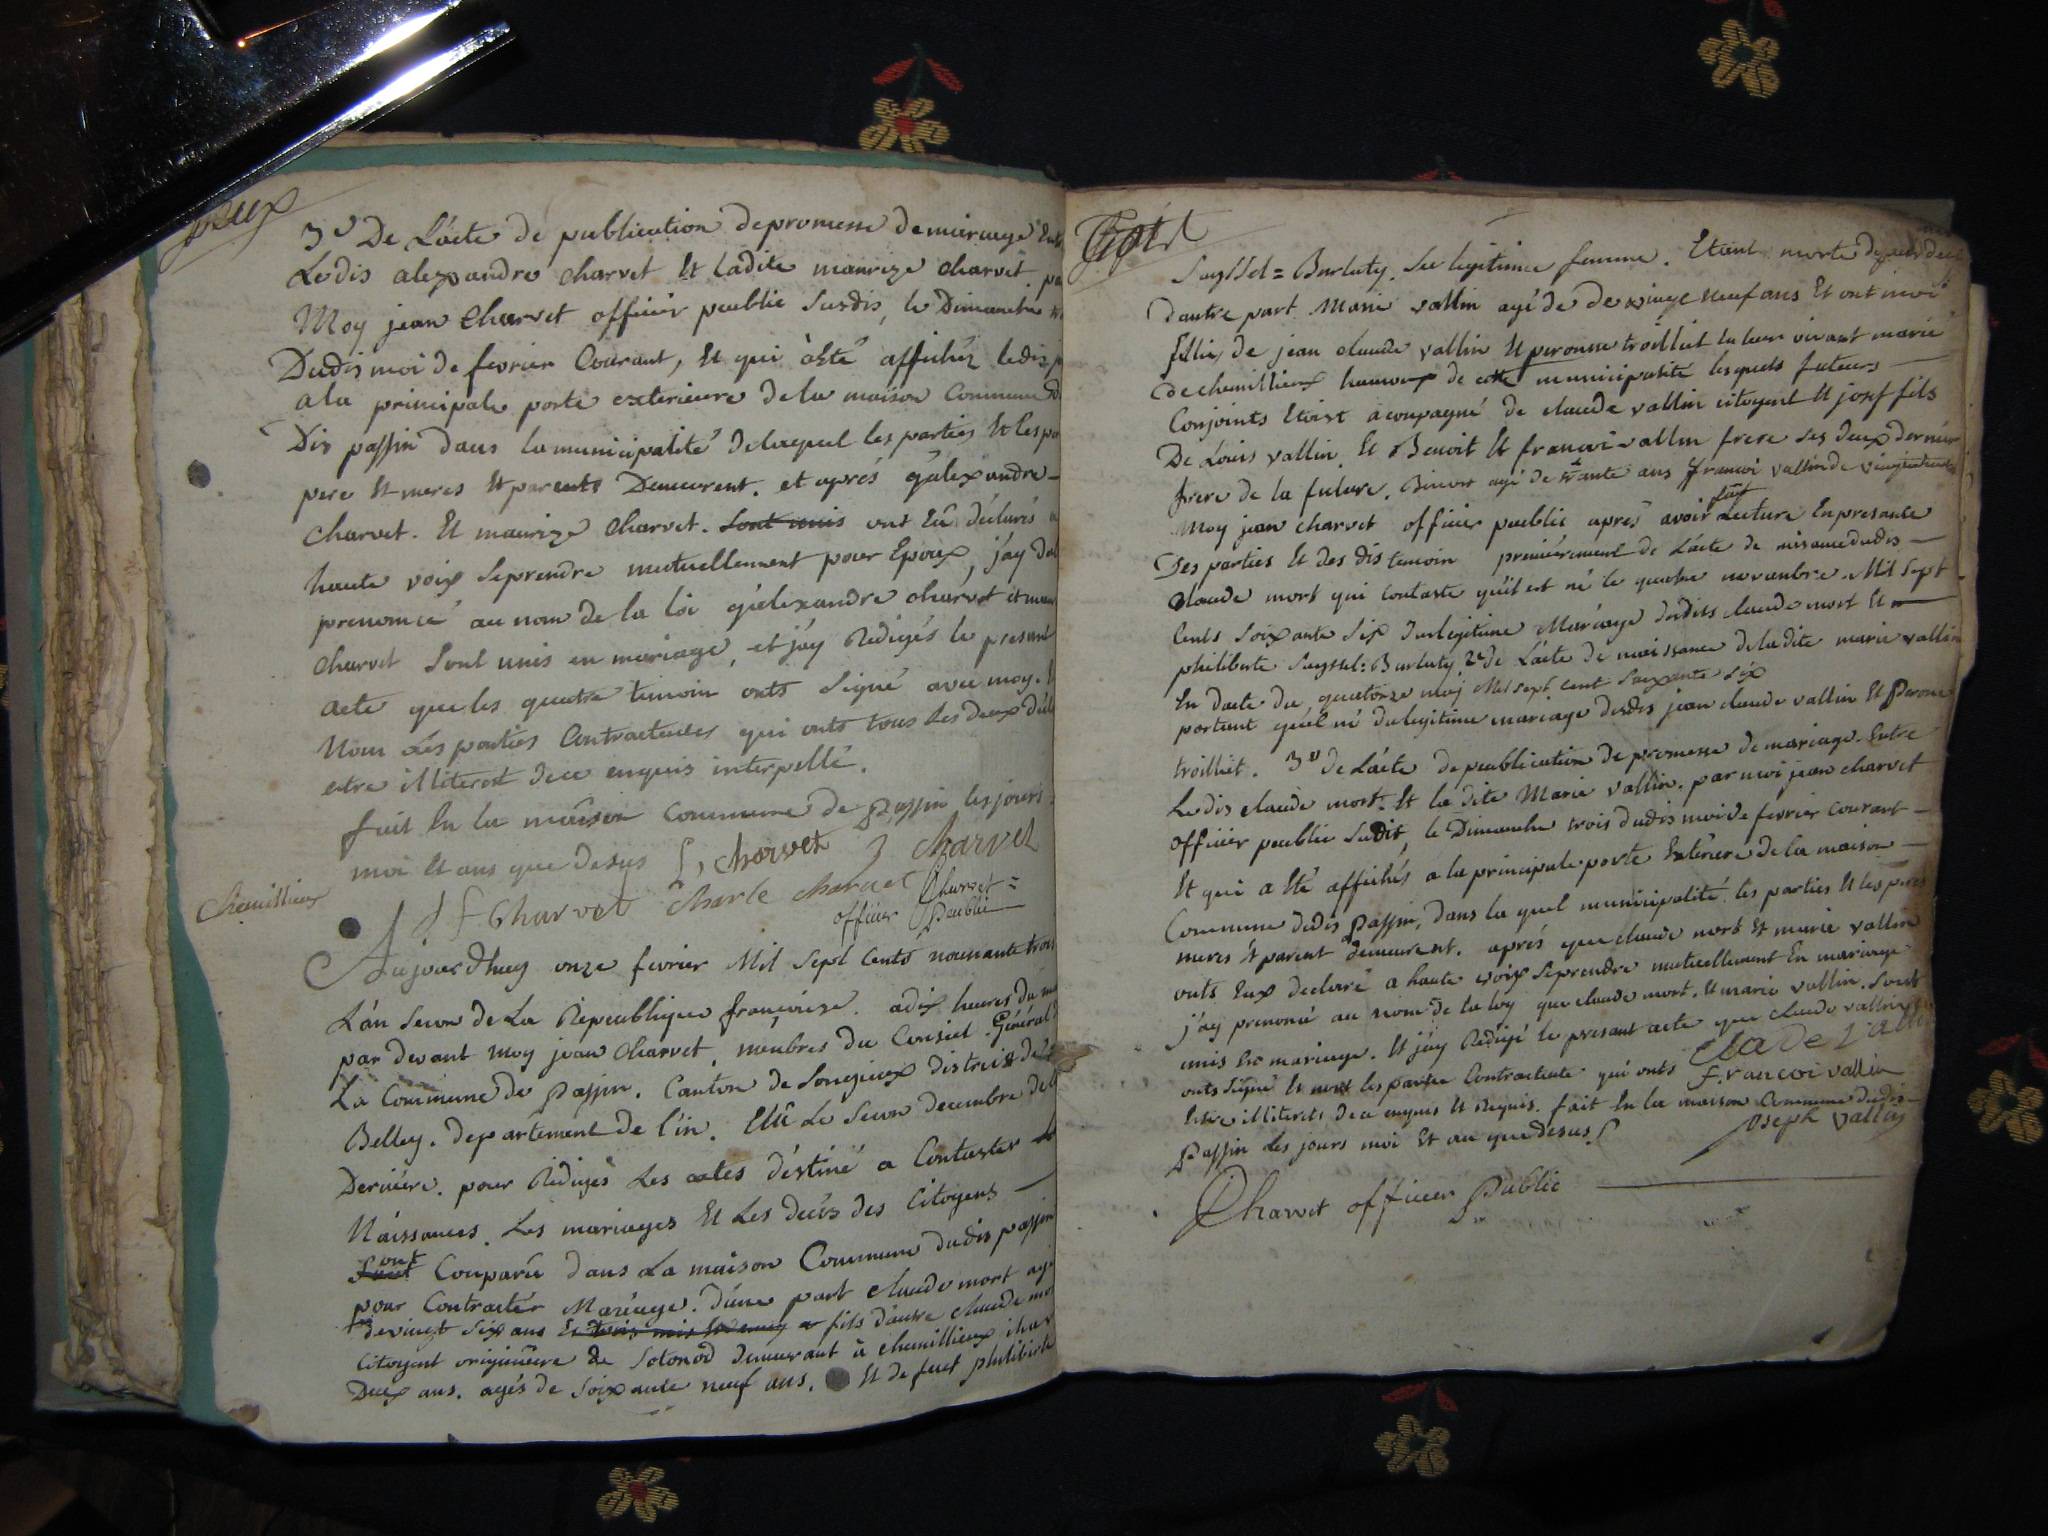 deux
3º De L'acte de publication de promesse de mariage
Ledis alexandre charvet Et ladite maurize charvet
Moy jean Charvet officier public Susdis, le Dimanche
Dudis moi de fevrier Courant, Et qui à Eté affichéz ledis
a la principale porte exterieure de la maison Commune
Dis passin dans la municipalité delaquel les parties Et les
pere Et meres Et parents Demeurent. et aprés q'alexandre
Charvet. Et maurize Charvet. Sont unis ont Eû déclarés
haute voix Seprendre mutuellement pour Epoux, j'ay
prenoncé au nom de la loi q'alexandre charvet et
charvet Sont unis en mariage, et j'ay Redigés le present
acte que les quatre temoin onts Signé avec moy.
Non Les parties Contractentes qui onts tous les deux
estre illiterest dece enquis interpellé.
fait En la maison commune de Passin les jours
moi Et ans que desus charvet J charvet
J f Charvet Charle charvet Charvet =
officier Public
Chemillieux
Aujourdhuy onze fevrier Mil Sept Cents nonnante trois
L'án Secon de La Republique françoise. a dix heures du
par devant moy jean Charvet, membres du Conseil Général
La Commune de Passin. Canton de Songieux district de
Belley. departement de l'in. Elû Le Secon decembre
Derniére. pour Rédigés Les actes déstiné a Contaster
Náissances. Les mariages Et Les decés des Citoyens
Sont ont Comparû dans La maison Commune dudis passin
pour Contracter Mariage. D'une part claude mort
devingt Six ans fils d'autre claude
Citoyent originaire de Sotonod demeurant à chemillieux
Deux ans. agés de Soixante neuf ans. Et de feut philiberte
Trois
Seyssel = Burlaty. Sa legitime femme. Etant morte depuis
dautre part Marie vallin agé de de vingt neuf ans Et
fillie de jean claude vallin Et peronne troilliet
de chemillieux hameux de cette municipalité lesquels futeurs
Conjoints acoupagné de claude vallin citoyent Et josef fils
De Louis vallin. Et Benoit Et francoi vallin frere Ses deux dernier
frere de la future. Benoit agé de ans francoi vallin de
Moy jean charvet officier public aprés avoir fait Lecture En presance
Des parties Et des dis temoin premiérement de L'acte de
claude mort qui Contaste qu'il est né le quatre novanbre. Mil Sept
Cents Soixante Six Mariage claude mort Et
philiberte Seyssel: Burlaty 2º de L'acte de naissance de ladite marie vallin
En date du quatorze Mil sept cent Soixante Six
portant du legitime mariage jean claude vallin Et
troilliet. 3º de L'acte de publication de promesse de mariage. Entre
Ledis claude mort. Et la dite Marie vallin. par moi jean charvet
officier public Sudit, le Dimanche trois dudis moi de fevrier courant
Et qui a Eté affichés a la principale porte Extérieure de la maison
Commune dudis Passin, dans la quel municipalité les parties Et les peres
meres Et parent demeurent. aprés que claude mort Et marie vallin
onts Eux declaré a haute voix Seprendre mutuellement En mariage
j'ay prenoncé au nom de la loy que claude mort. Et marie vallin. Sont
unis En mariage. Et j'ay Redigé le presant acte que claude vallin
onts Signé Et non les parties Contractente qui onts Clade
francoi vallin
Estre illiterets dece enquis Et Requis. fait En la maison Commune dudis
Passin Les jours moi Et an que desus. Joseph vallin
Charvet officier Public